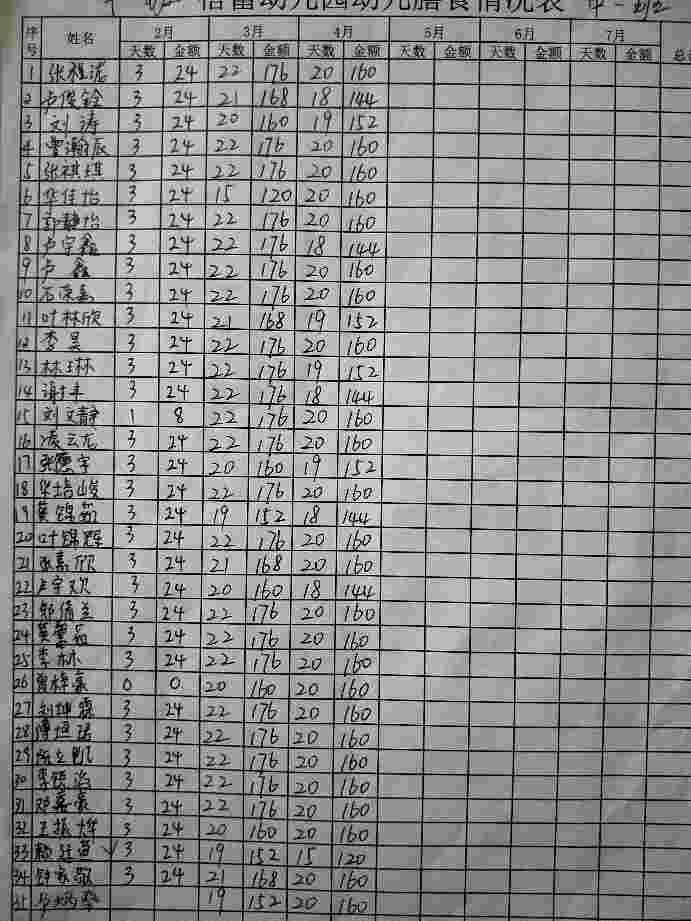 幼儿园幼儿膳食情况表 中一班
序号 姓名 2月 3月 4月 5月 6月 7月
天数 金额 天数 金额 天数 金额 天数 金额 天数 金额 天数 金额
1 张 3 24 22 176 20 160
2 卢俊铨 3 24 21 168 18 144
3 刘涛 3 24 20 160 19 152
4 瀚辰 3 24 22 176 20 160
5 张祺琪 3 24 22 176 20 160
6 华佳怡 3 24 15 120 20 160
7 郭静怡 3 24 22 176 20 160
8 卢宇鑫 3 24 22 176 18 144
9 卢鑫 3 24 22 176 20 160
10 石 3 24 22 176 20 160
11 叶林欣 3 24 21 168 19 152
12 李昊 3 24 22 176 20 160
13 林琳 3 24 22 176 19 152
14 谢丰 3 24 22 176 18 144
15 刘文静 1 8 22 176 20 160
16 凌云龙 3 24 22 176 20 160
17 张德宇 3 24 20 160 19 152
18 华培峻 3 24 22 176 20 160
19 黄锦茹 3 24 19 152 18 144
20 叶锦辉 3 24 22 176 20 160
21 张嘉欣 3 24 21 168 20 160
22 卢宇欢 3 24 20 160 18 144
23 3 24 22 176 20 160
24 3 24 22 176 20 160
25 李林 3 24 22 176 20 160
26 0 0 20 160 20 160
27 刘坤霖 3 24 22 176 20 160
28 傅恒瑞 3 24 22 176 20 160
29 陈立凯 3 24 22 176 20 160
30 李 3 24 22 176 20 160
31 邓嘉豪 3 24 22 176 20 160
32 王振烨 3 24 20 160 20 160
33 赖 3 24 19 152 15 120
34 钟家聪 3 24 21 168 20 160
35 19 152 20 160